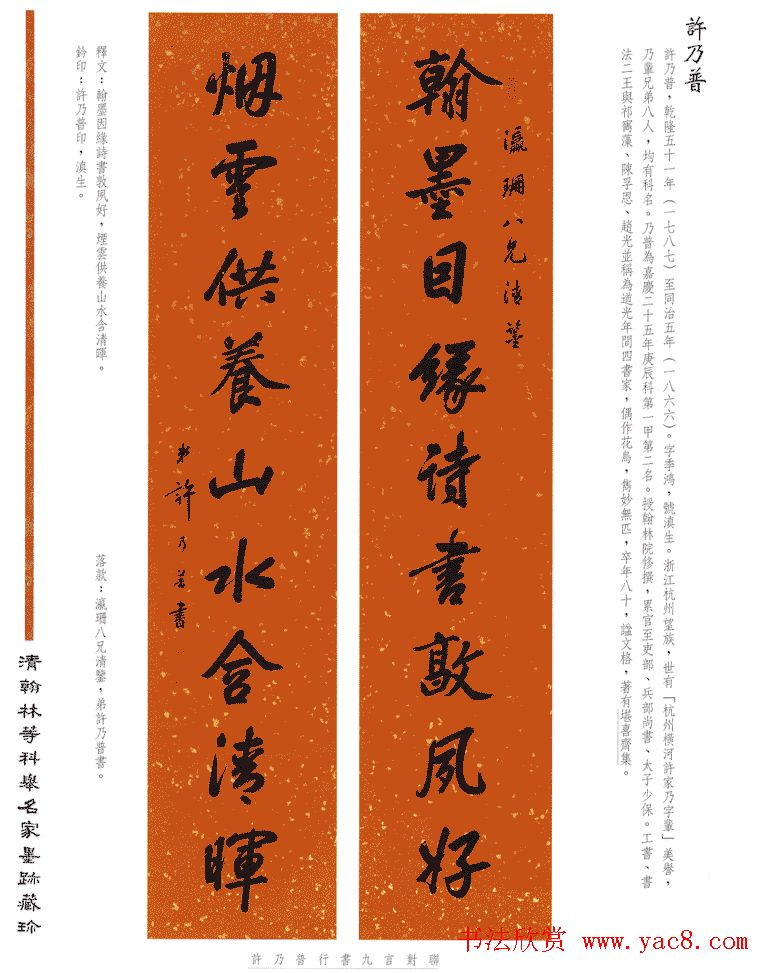 許乃普
許乃普，乾隆五十一年（一七八七）至同治五年（一八六六）。字季鴻，號滇生。浙江杭州望族，世有「杭州橫河許家乃字輩」美譽，
乃輩兄弟八人，均有科名。乃普為嘉慶二十五年庚辰科第一甲第二名。授翰林院修撰，累官至吏部、兵部尚書、太子少保。工書、書
法二王與祁寯藻、陳孚恩、趙光並稱為道光年間四書家，偶作花鳥，雋妙無匹，卒年八十，謚文恪，著有堪喜齋集。
瀛珊八兄清鑒
翰墨因緣詩書敦夙好
烟雲供養山水含清暉
弟許乃普書
釋文：翰墨因緣詩書敦夙好，煙雲供養山水含清暉。
落款：瀛珊八兄清鑒，弟許乃普書。
鈐印：許乃普印，滇生。
清翰林等科舉名家墨跡藏珍
許乃普行書九言對聯
书法欣赏 www.yac8.com